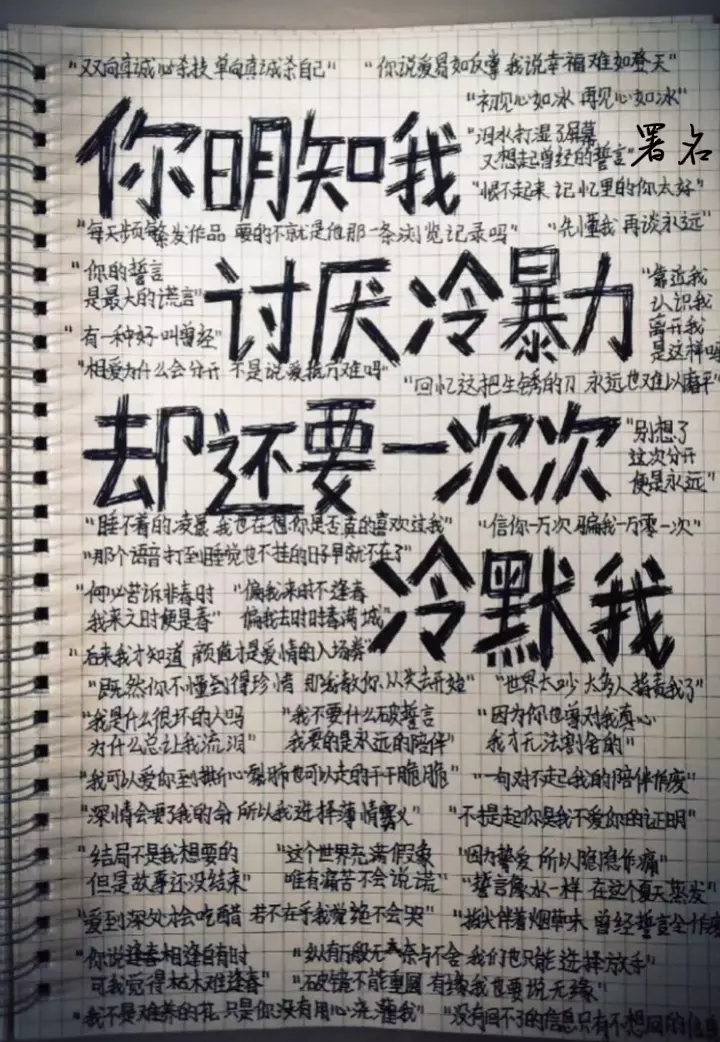 "双向真诚必杀技 单向真诚杀自己" "你说爱易如反掌 我说幸福难如登天"
"初见心如冰 再见心如冰"
你明知我
"泪水打湿了屏幕
又想起曾经的誓言"
署名
"恨不起来 记忆里的你太好"
"每天频繁发作品 要的不就是他那一条浏览记录吗" "先懂我 再谈永远"
"你的誓言
是最大的谎言"
讨厌冷暴力
"靠近我
认识我
离开我
是这样吗
"有一种好 叫曾经"
"相爱为什么会分开 不是说爱抵万难吗"
"回忆这把生锈的刀 永远也难以磨平"
却还要一次次
"别想了
这次分开
便是永远"
"睡不着的凌晨 我也在想你是否真的喜欢过我" "信你一万次 骗我一万零一次"
"那个语音打到睡觉也不挂的日子早就不在了"
冷默我
"何必苦诉非春时
我来之时便是春"
"偏我来时不逢春
偏我去时时春满城"
"后来我才知道 颜值才是爱情的入场券"
"既然你不懂到得珍惜 那我教你从失去开始" "世界太吵 太多人指责我了"
"我是什么很坏的人吗
为什么总让我流泪"
"我不要什么破誓言
我要的是永远的陪伴"
"因为你也曾对我真心
我才无法割舍的"
"我可以爱你到撕心裂肺也可以走的干干脆脆" "一句对不起我的陪伴作废"
"深情会要了我的命 所以我选择薄情寡义" "不提起你是我不爱你的证明"
"结局不是我想要的
但是故事还没结束"
"这个世界充满假象
唯有痛苦不会说谎"
"因为挚爱 所以隐隐作痛"
"誓言像水一样 在这个夏天蒸发"
"爱到深处才会吃醋 若不在乎我觉绝不会哭" "指尖伴着烟草味 曾经誓言全作
"你说逢春相逢自有时
可我觉得枯木难逢春"
"纵有万般无奈与不舍 我们也只能选择放手"
"破镜不能重圆 有缘我也要说无缘"
"我不是难养的花 只是你没有用心浇灌我" "没有回不了的信息只有不想回的信